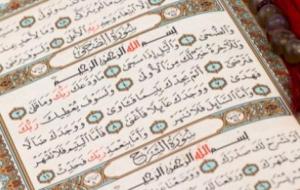 رَبِّهِ الْأَعْلَىٰ
سُورَةُ الضُّحَىٰ
بِسْمِ اللَّهِ الرَّحْمَٰنِ الرَّحِيمِ
وَالضُّحَىٰ وَاللَّيْلِ إِذَا سَجَىٰ مَا وَدَّعَكَ رَبُّكَ وَمَا قَلَىٰ
وَلَلْآخِرَةُ خَيْرٌ لَكَ مِنَ الْأُولَىٰ وَلَسَوْفَ يُعْطِيكَ رَبُّكَ
فَتَرْضَىٰ أَلَمْ يَجِدْكَ يَتِيمًا فَآوَىٰ وَوَجَدَكَ ضَالًّا
فَهَدَىٰ وَوَجَدَكَ عَائِلًا فَأَغْنَىٰ فَأَمَّا الْيَتِيمَ فَلَا تَقْهَرْ
وَأَمَّا السَّائِلَ فَلَا تَنْهَرْ وَأَمَّا بِنِعْمَةِ رَبِّكَ فَحَدِّثْ
سُورَةُ الشَّرْحِ
بِسْمِ اللَّهِ الرَّحْمَٰنِ الرَّحِيمِ
أَلَمْ نَشْرَحْ لَكَ صَدْرَكَ